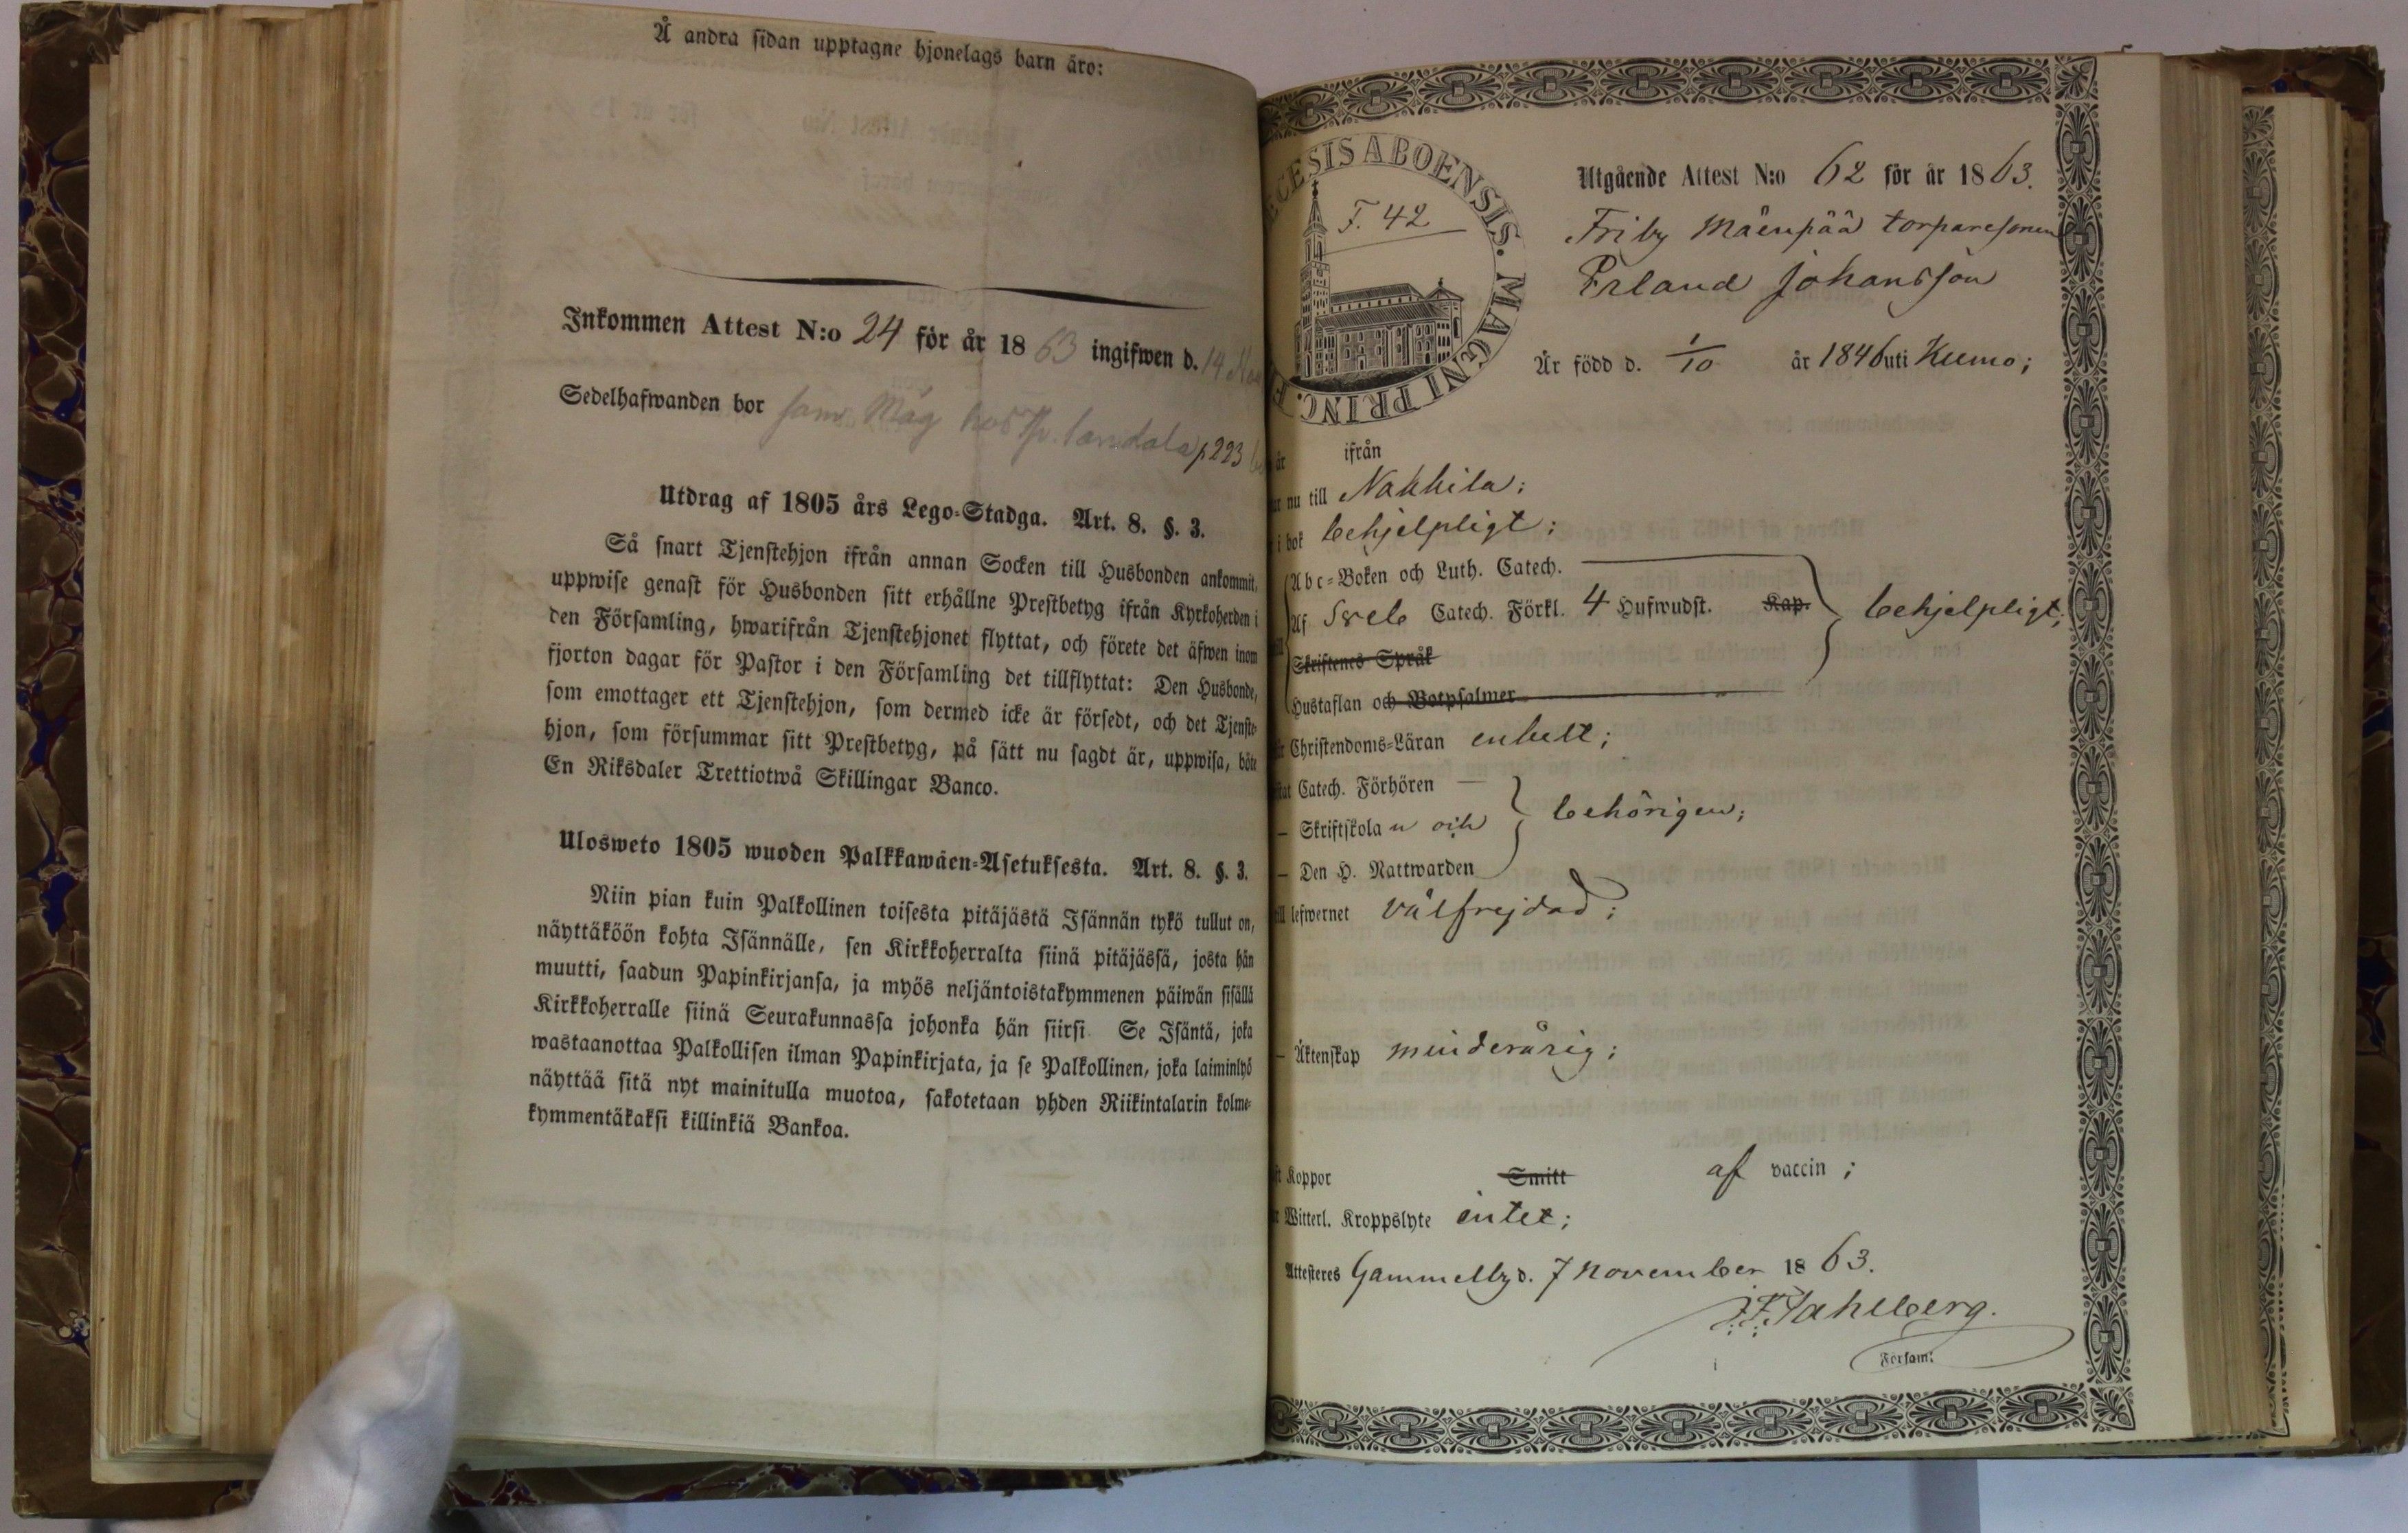 Å andra sidan upptagne hjonelags barn äro:
Inkommen Attest N:o 24 för år 1863 ingifwen d. 14
Sedelhafwanden bor som Måg hos p 223
Utdrag af 1805 års Lego-Stadga. Art. 8. §. 3.
Så snart Tjenstehjon ifrån annan Socken till Husbonden ankommit,
uppwise genast för Husbonden sitt erhållne Prestbetyg ifrån Kyrkoherden i
den Församling, hwarifrån Tjenstehjonet flyttat, och förete det äfwen inom
fjorton dagar för Pastor i den Församling det tillflyttat: Den Husbonde,
som emottager ett Tjenstehjon, som dermed icke är försedt, och det Tjenste-
hjon, som försummar sitt Prestbetyg, på sätt nu sagdt är, uppwisa, böte
En Riksdaler Trettiotwå Skillingar Banco.
Ulosweto 1805 wuoden Palkkawäen-Asetuksesta. Art. 8. §. 3.
Niin pian kuin Palkollinen toisesta pitäjästä Isännän tykö tullut on,
näyttäköön kohta Isännälle, sen Kirkkoherralta siinä pitäjässä, josta hän
muutti, saadun Papinkirjansa, ja myös neljäntoistakymmenen päiwän sisällä
Kirkkoherralle siinä Seurakunnassa johonka hän siirsi. Se Isäntä, joka
wastaanottaa Palkollisen ilman Papinkirjata, ja se Palkollinen, joka laiminlyö
näyttää sitä nyt mainitulla muotoa, sakotetaan yhden Riikintalarin kolme-
kymmentäkaksi killinkiä Bankoa.
CESIS ABOENSIS. MAGNI PRINC. F
F. 42
Utgående Attest N:o 62 för år 1863.
Friby Mäenpää torparesonen
Erland Johansson
Är född d. 1/10 år 1846 uti Kumo;
är ifrån
nu till Nakkila;
i bok behjelpligt;
Abc-Boken och Luth. Catech.
Af Sveb Catech. Förkl. 4 Hufwudst. Kap. behjelpligt;
Skriftenes Språk
Hustaflan och Botpsalmer
Christendoms-Läran enkelt;
Catech. Förhören
— Skriftskolan och behörigen;
— Den H. Nattwarden
till lefwernet välfrejdad;
— Äktenskap minderårig;
Koppor Smitt af vaccin;
Witterl. Kroppslyte intet;
Attesteres Gammelby d. 7 November 1863.
Församl